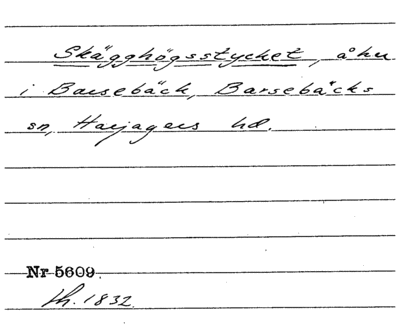 Skägghögsstycket, åker
i Barsebäck, Barsebäcks
sn, Harjagers hd.
Nr 5609
1832